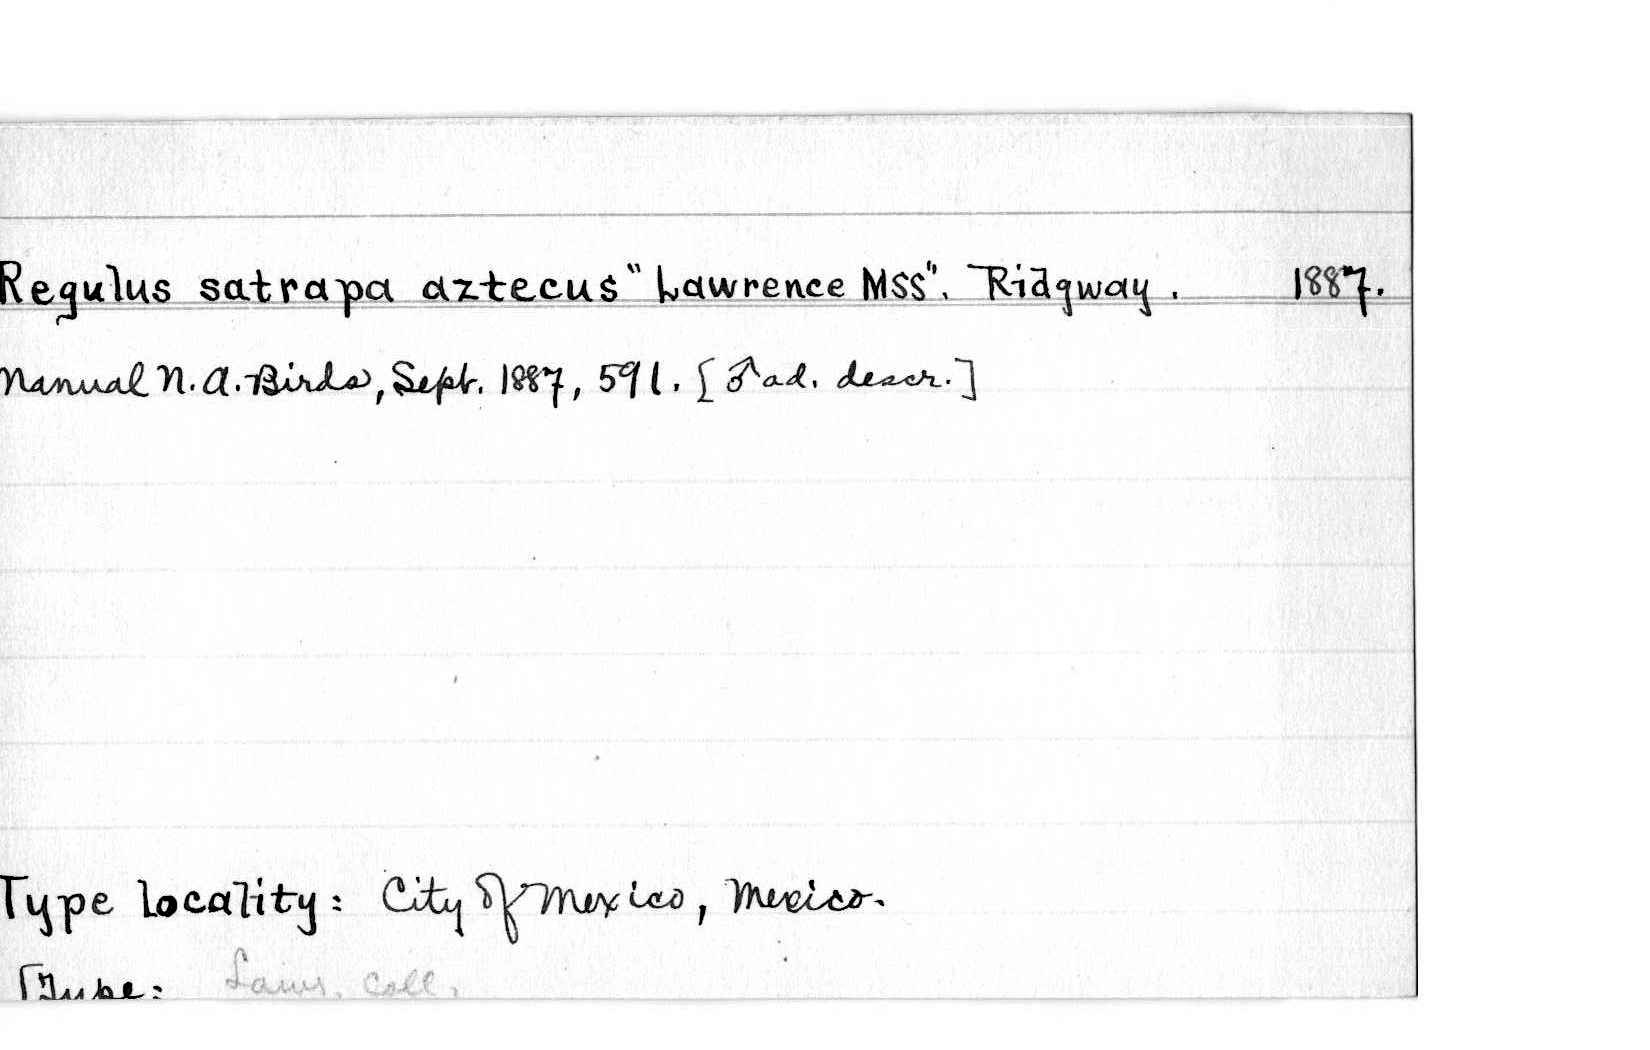 Regulus satrapa aztecus "Lawrence MSS". Ridgway. 1887.
Manual N.A. Birds, Sept. 1887, 591. [♂ ad. descr.]
Type locality: City of Mexico, Mexico.
[Type: Lawr. Coll.